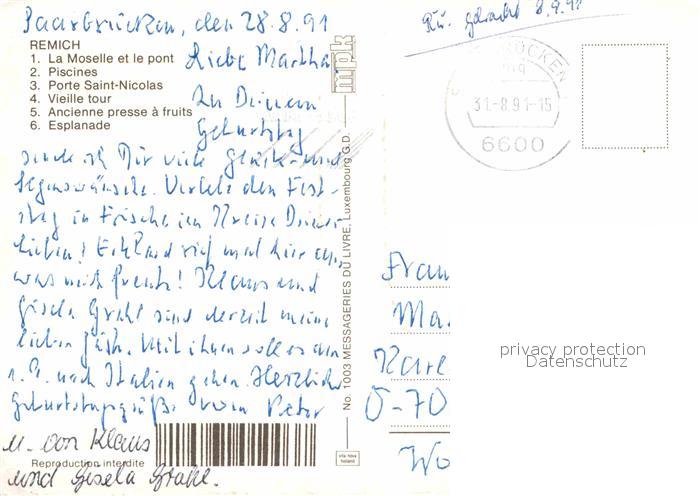 Saarbrücken, den 28.8.91
REMICH
1. La Moselle et le pont
2. Piscines
3. Porte Saint-Nicolas
4. Vieille tour
5. Ancienne presse à fruits
6. Esplanade
mpk
Liebe Martha
Zu Deinem
Geburtstag
sende ich Dir viele Glück- und
Segenswünsche. Verlebe den Fest-
tag in Frische im Kreise Deiner
Lieben! Ekkhard rief mal hier an,
was mich freute! Klaus und
Gisela Grahl sind derzeit meine
lieben Gäste. Mit ihnen soll es am
1.9. nach Italien gehen. Herzliche
Geburtstagsgrüße vom Peter
u. von Klaus
und Gisela
Reproduction interdite
via nova
No. 1003 MESSAGERIES DU LIVRE, Luxembourg G.D.
8.9.91
31.-8.91-15
6600
Frau
Ma
Kare
O-70
privacy protection
Datenschutz